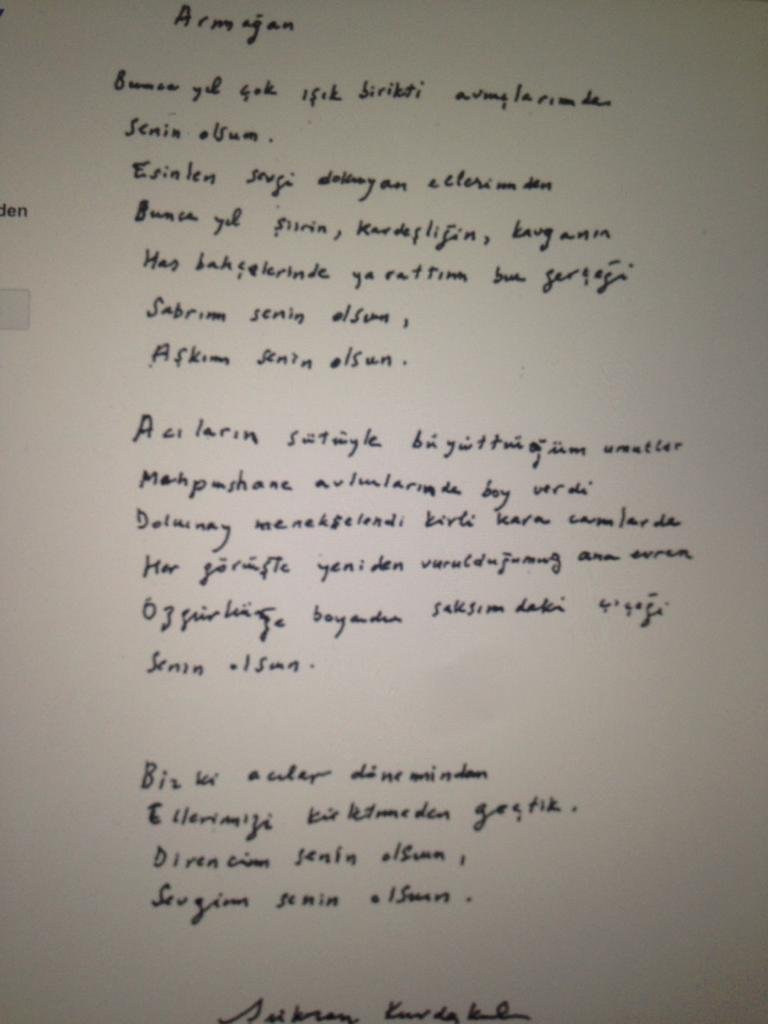 Armağan
Bunca yıl çok ışık birikti avuçlarımda
senin olsun.
Esinlen sevgi dokuyan ellerimden
Bunca yıl şiirin, kardeşliğin, kavganın
Has bahçelerinde yarattım bu gerçeği
Sabrım senin olsun,
Aşkım senin olsun.
Acıların sütüyle büyüttüğüm umutlar
Mahpushane avlularında boy verdi
Dolunay menekşelendi kirli kara camlarda
Her görüşte yeniden vurulduğumuz ana evren
Özgürlüğe boyadı saksımdaki çiçeği
Senin olsun.
Biz ki acılar döneminden
Ellerimizi kirletmeden geçtik.
Direncim senin olsun,
Sevgim senin olsun.
Şükran Kurdakul
den